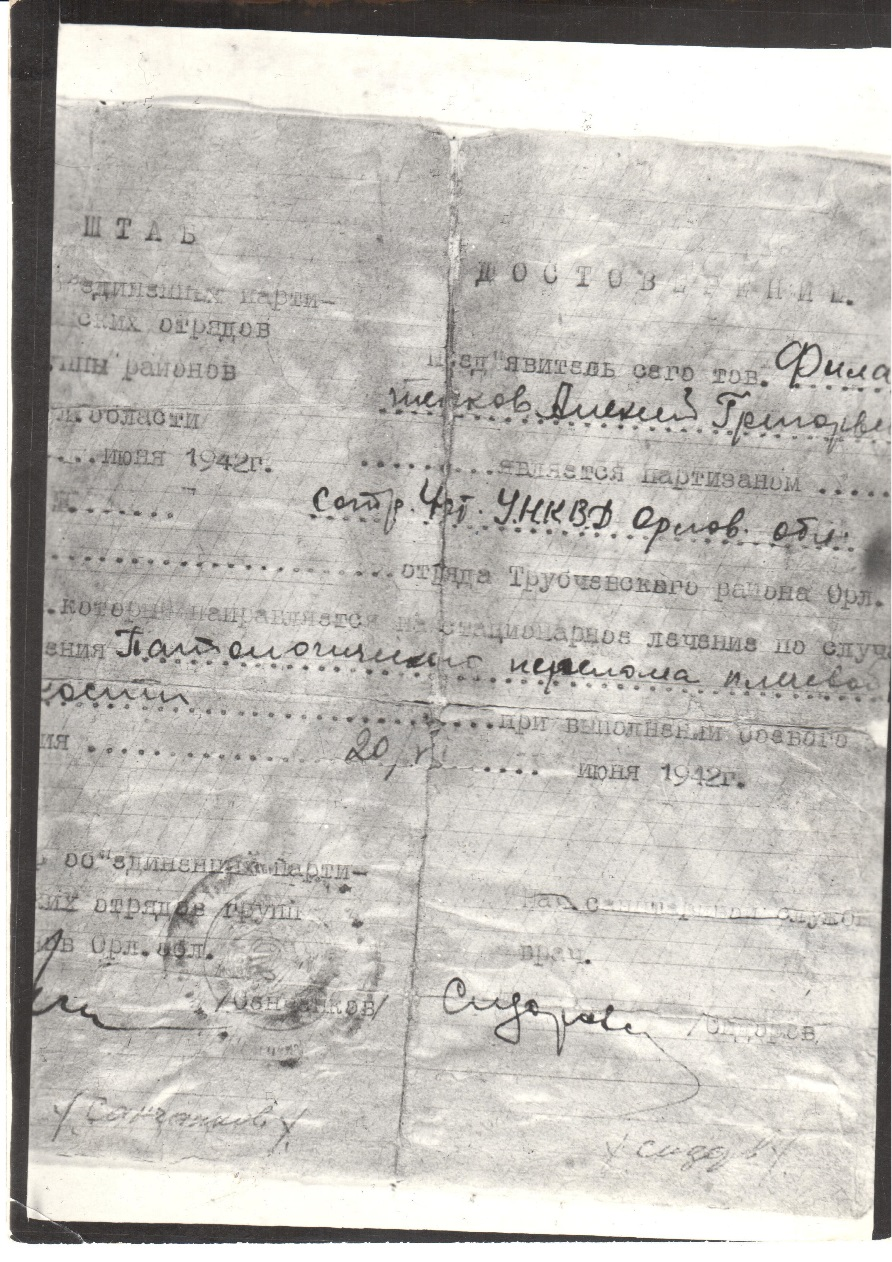 ШТАБ
единенных парти-
ских отрядов
районов
области
июня 1942г.
ДОСТОВЕРЕНИЕ.
Пред"явитель сего тов. Фила
ченков Алексей Григорье
является партизаном
сотр. 4 от. УНКВД Орлов. обл.
отряда Трубчевского района Орл.
который направляется на стационарное лечение по случ
ения Патологического перелома плечевой
кости
при выполнении боевого
ия 20/VI июня 1942г.
об"единенных парти-
ких отрядов групп
ов Орл.обл.
/Сенченков/
Нач.санитарной служб
врач.
Сидоров /Сидоров/
/Сенченков/
/Сидоров/